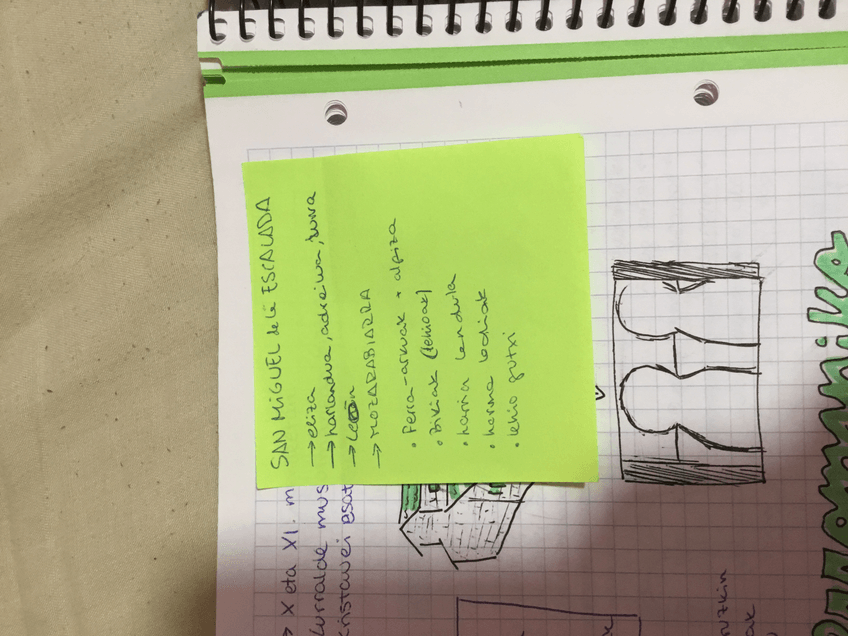 SAN MiGUEL de la ESCALADA
→ eliza
→ harlandua, adreilua, zura
→ León
→ MOZARABIARRA
• Ferra-arkuak + alfiza
• Bikiak (leihoak)
• harria landula
• horma lodiak
• leiho gutxi
→ X eta XI. m
lurralde mus
kristauei esat